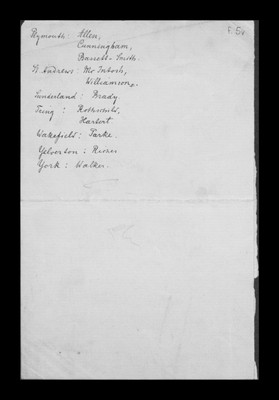 Plymouth: Allen,
Cunningham,
Barrett-Smith.
St Andrews: McIntosh,
Williamson,
Sunderland: Brady
Tring: Rothschild,
Hartert
Wakefield: Parke.
Yelverton:
York: Walker.